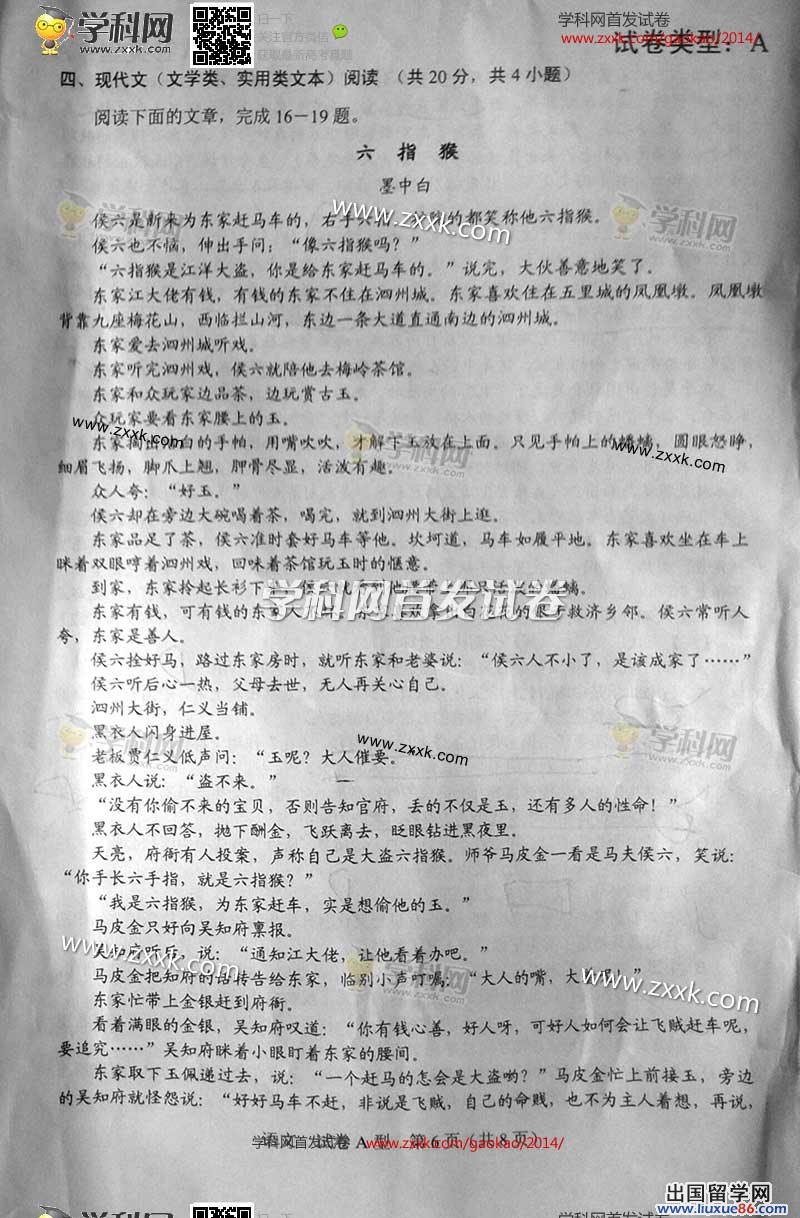 学科网
www.zxxk.com
扫一下
关注官方微信
获取最新高考真题
学科网首发试卷
www.zxxk.com/gaokao/2014/
试卷类型：A
四、现代文（文学类、实用类文本）阅读 （共20分，共4小题）
阅读下面的文章，完成16－19题。
六 指 猴
墨中白
侯六是新来为东家赶马车的，右手六指 的都笑称他六指猴。
侯六也不恼，伸出手问：“像六指猴吗？”
“六指猴是江洋大盗，你是给东家赶马车的。”说完，大伙善意地笑了。
东家江大佬有钱，有钱的东家不住在泗州城。东家喜欢住在五里城的凤凰墩。凤凰墩
背靠九座梅花山，西临拦山河，东边一条大道直通南边的泗州城。
东家爱去泗州城听戏。
东家听完泗州戏，侯六就陪他去梅岭茶馆。
东家和众玩家边品茶，边玩赏古玉。
众玩家要看东家腰上的玉。
东家掏出 白的手帕，用嘴吹吹，才解下玉放在上面。只见手帕上的 ，圆眼怒睁，
细眉飞扬，脚爪上翘，胛骨尽显，活泼有趣。
众人夸：“好玉。”
侯六却在旁边大碗喝着茶，喝完，就到泗州大街上逛。
东家品足了茶，侯六准时套好马车等他。坎坷道，马车如履平地。东家喜欢坐在车上
眯着双眼哼着泗州戏，回味着茶馆玩玉时的惬意。
到家，东家拎起长衫下
东家有钱，可有钱的东家 救济乡邻。侯六常听人
夸，东家是善人。
侯六拴好马，路过东家房时，就听东家和老婆说：“侯六人不小了，是该成家了……”
侯六听后心一热，父母去世，无人再关心自己。
泗州大街，仁义当铺。
黑衣人闪身进屋。
老板贾仁义低声问：“玉呢？大人催要。”
黑衣人说：“盗不来。”
“没有你偷不来的宝贝，否则告知官府，丢的不仅是玉，还有多人的性命！”
黑衣人不回答，抛下酬金，飞跃离去，眨眼钻进黑夜里。
天亮，府衙有人投案，声称自己是大盗六指猴。师爷马皮金一看是马夫侯六，笑说：
“你手长六手指，就是六指猴？”
“我是六指猴，为东家赶车，实是想偷他的玉。”
马皮金只好向吴知府禀报。
吴知府听后，说：“通知江大佬，让他看着办吧。”
马皮金把知府的话转告给东家，临别小声叮嘱：“大人的嘴，大
东家忙带上金银赶到府衙。
看着满眼的金银，吴知府叹道：“你有钱心善，好人呀，可好人如何会让飞贼赶车呢，
要追究……”吴知府眯着小眼盯着东家的腰间。
东家取下玉佩递过去，说：“一个赶马的怎会是大盗哟？”马皮金忙上前接玉，旁边
的吴知府就怪怨说：“好好马车不赶，非说是飞贼，自己的命贱，也不为主人着想，再说，
语文 试卷A型 第6页（共8页）
学科网首发试卷
www.zxxk.com/gaokao/2014/
出国留学网
www.liuxue86.com